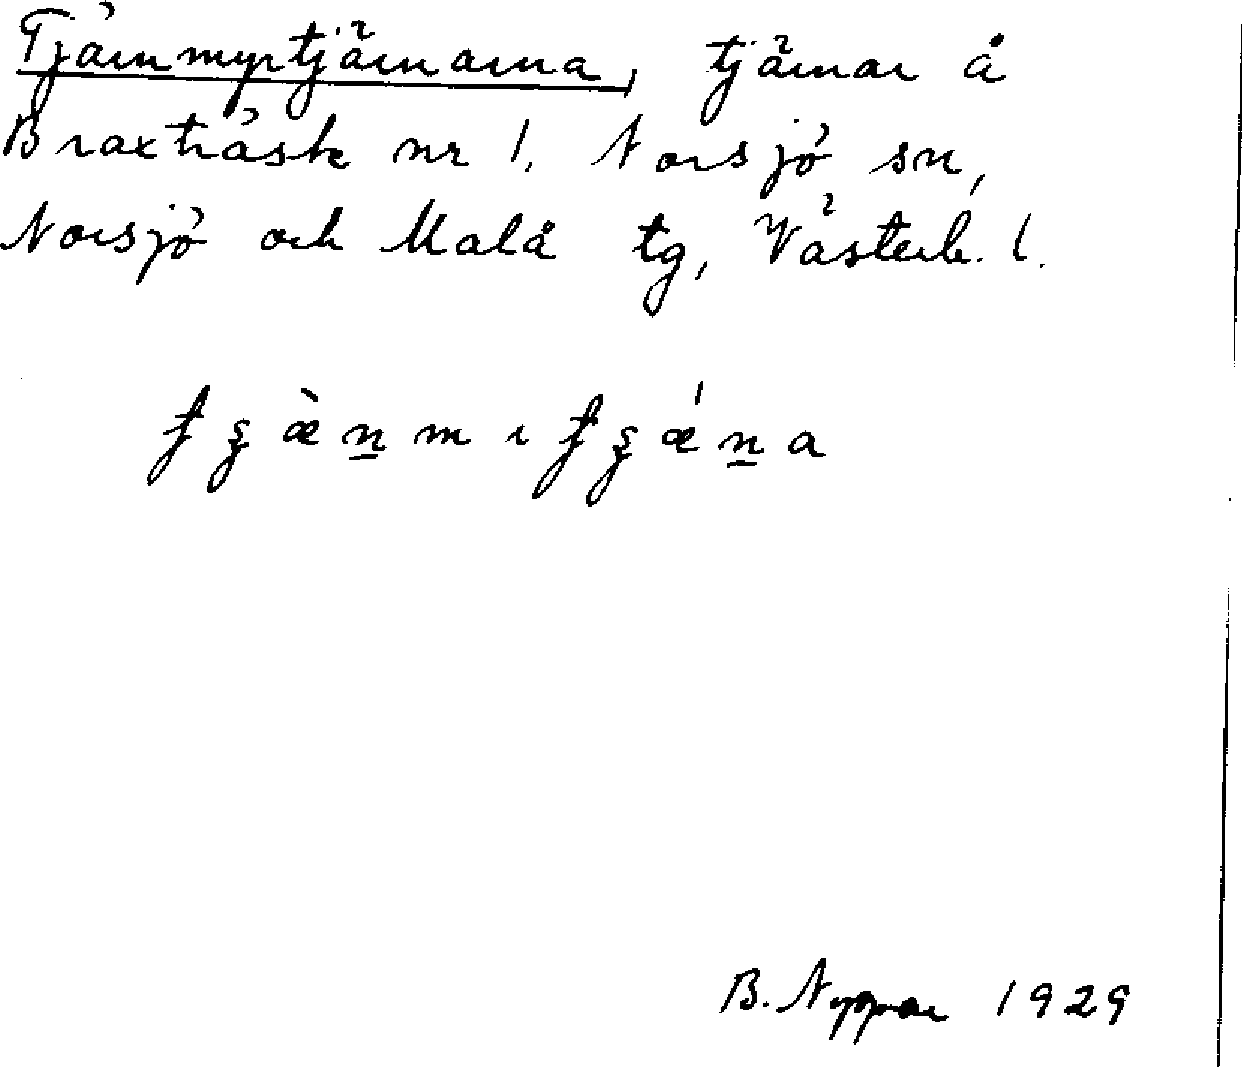 Tjärnmyrtjärnarna, tjärnar å
Braxträsk nr 1, Norsjö sn,
Norsjö och Malå tg, Västerb. l.
B. Nyppar 1929